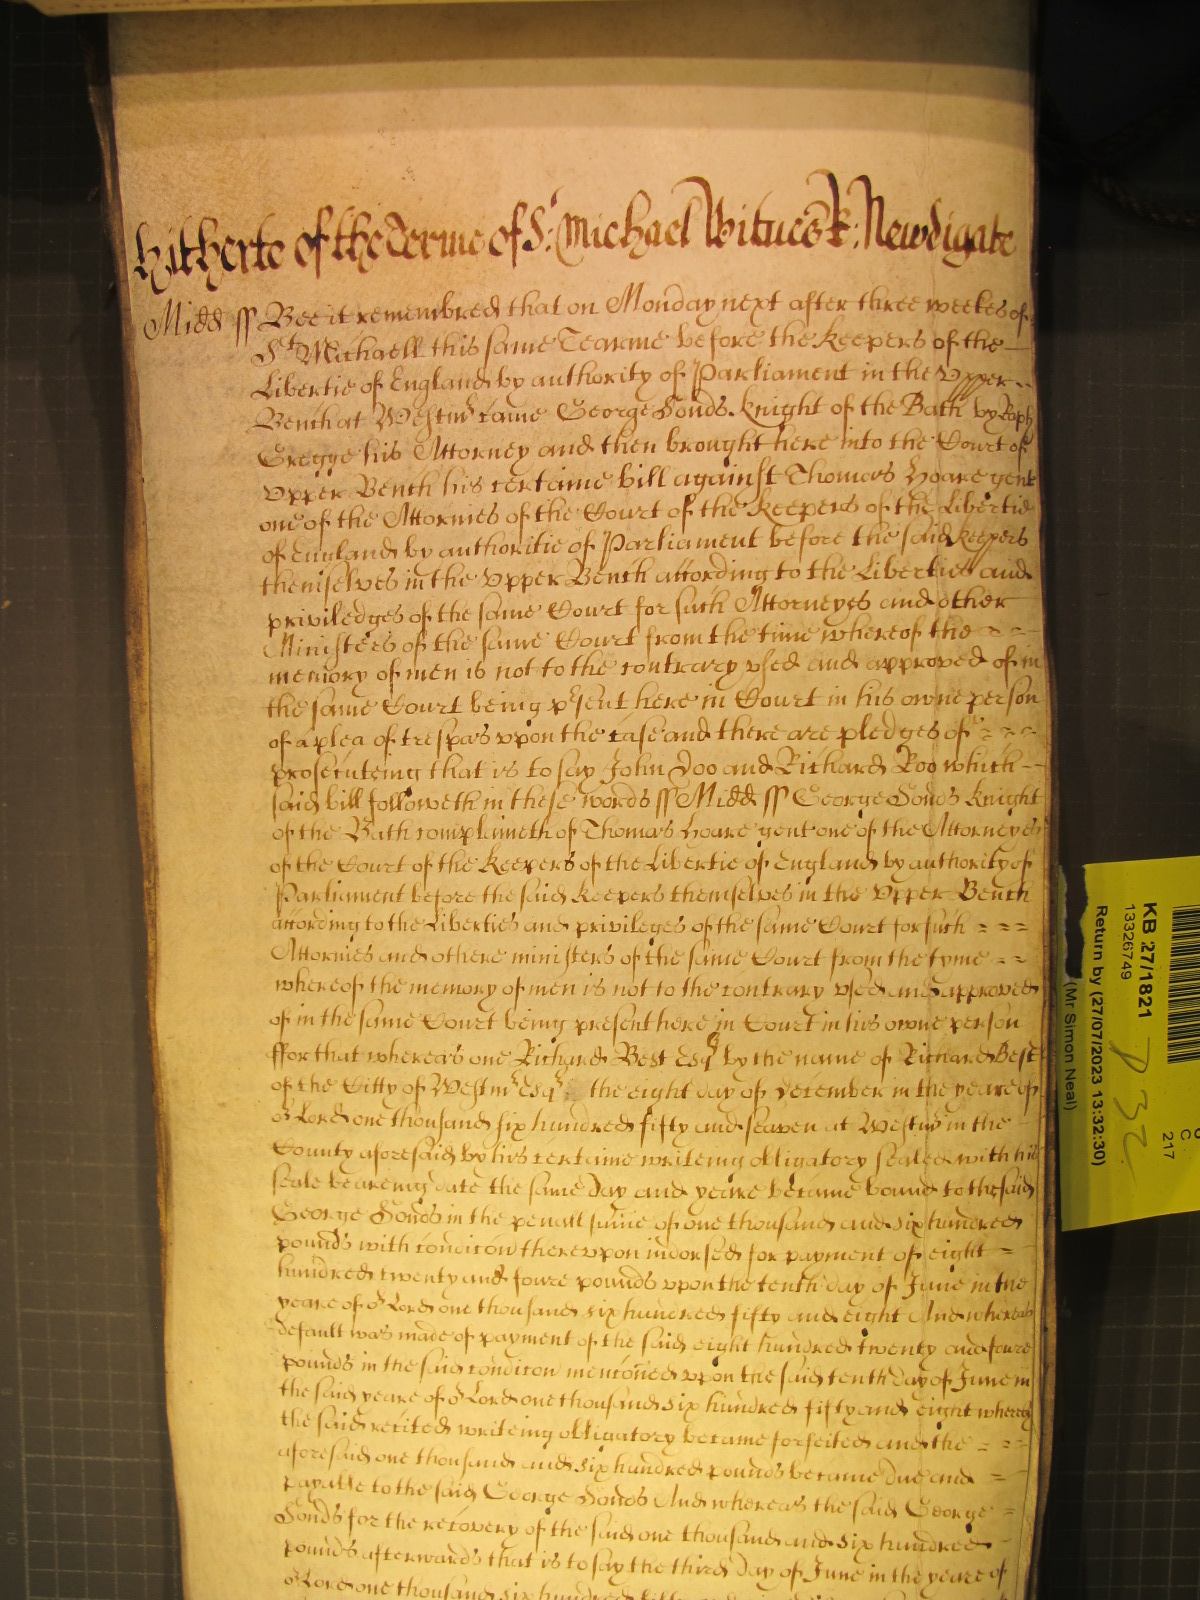 hitherto of the Terme of St: Michael Witnes R: Newdigate
Midd ss Bee it remembred that on Monday next after three weekes of
St Michaell this same Tearme before the Keepers of the
Libertie of England by authority of Parliament in the Vpper
Bench at Westmr came George Sonds Knight of the Bath by Raph
Gregge his Attorney and then brought here into the Court of
vpper Bench his certaine bill against Thomas Hoare gent
one of the Attornies of the Court of the Keepers of the Libertie
of England by authoritie of Parliament before the said keepers
themselves in the Vpper Bench according to the Liberties and
priviledges of the same Court for such Attorneyes and other
Ministers of the same Court from the time whereof the
memory of men is not to the contrary vsed and approved of in
the same Court being psent here in Court in his owne person
of a plea of trespas vpon the case and there are pledges of
prosecuteing that is to say John Doo and Richard Roo which
said bill followeth in these words ss Midd ss George Sonds Knight
of the Bath complaineth of Thomas Hoare gent one of the Attorneyes
of the Court of the Keepers of the Libertie of England by authority of
Parliament before the said Keepers themselves in the Vpper Bench
according to the Liberties and privileges of the same Court for such
Attornies and othere ministers of the same Court from the tyme
whereof the memory of men is not to the contrary vsed and approved
of in the same Court being present here in Court in his owne person
ffor that whereas one Richard Best Esqr by the name of Richard Best
of the Citty of Westmr Esqr the eight day of December in the yeare of
or Lord one thousand six hundred fifty and seaven at Westmr in the
County aforesaid by his certaine writeing obligatory sealed with his
seale beareing date the same day and yeare became bound to the said
George Sonds in the penall sume of one thousand and six hundred
pounds with condicon therevpon indorsed for payment of eight
hundred twenty and foure pounds vpon the tenth day of June in the
yeare of or Lord one thousand six hundred fifty and eight And whereas
default was made of payment of the said eight hundred twenty and foure
pounds in the said condicon menconed vpon the said tenth day of June in
the said yeare of or Lord one thousand six hundred fifty and eight whereby
the said recited writeing obligatory became forfeited and the
aforesaid one thousand and six hundred pounds became due and
payable to the said George Sonds And whereas the said George
Sonds for the recovery of the said one thousand and six hundred
pounds afterwards that is to say the third day of June in the yeare of
or Lord one thousand six hundred
KB 27/1821
13326749
Return by (27/07/2023 13:32:30)
(Mr Simon Neal)
C
217